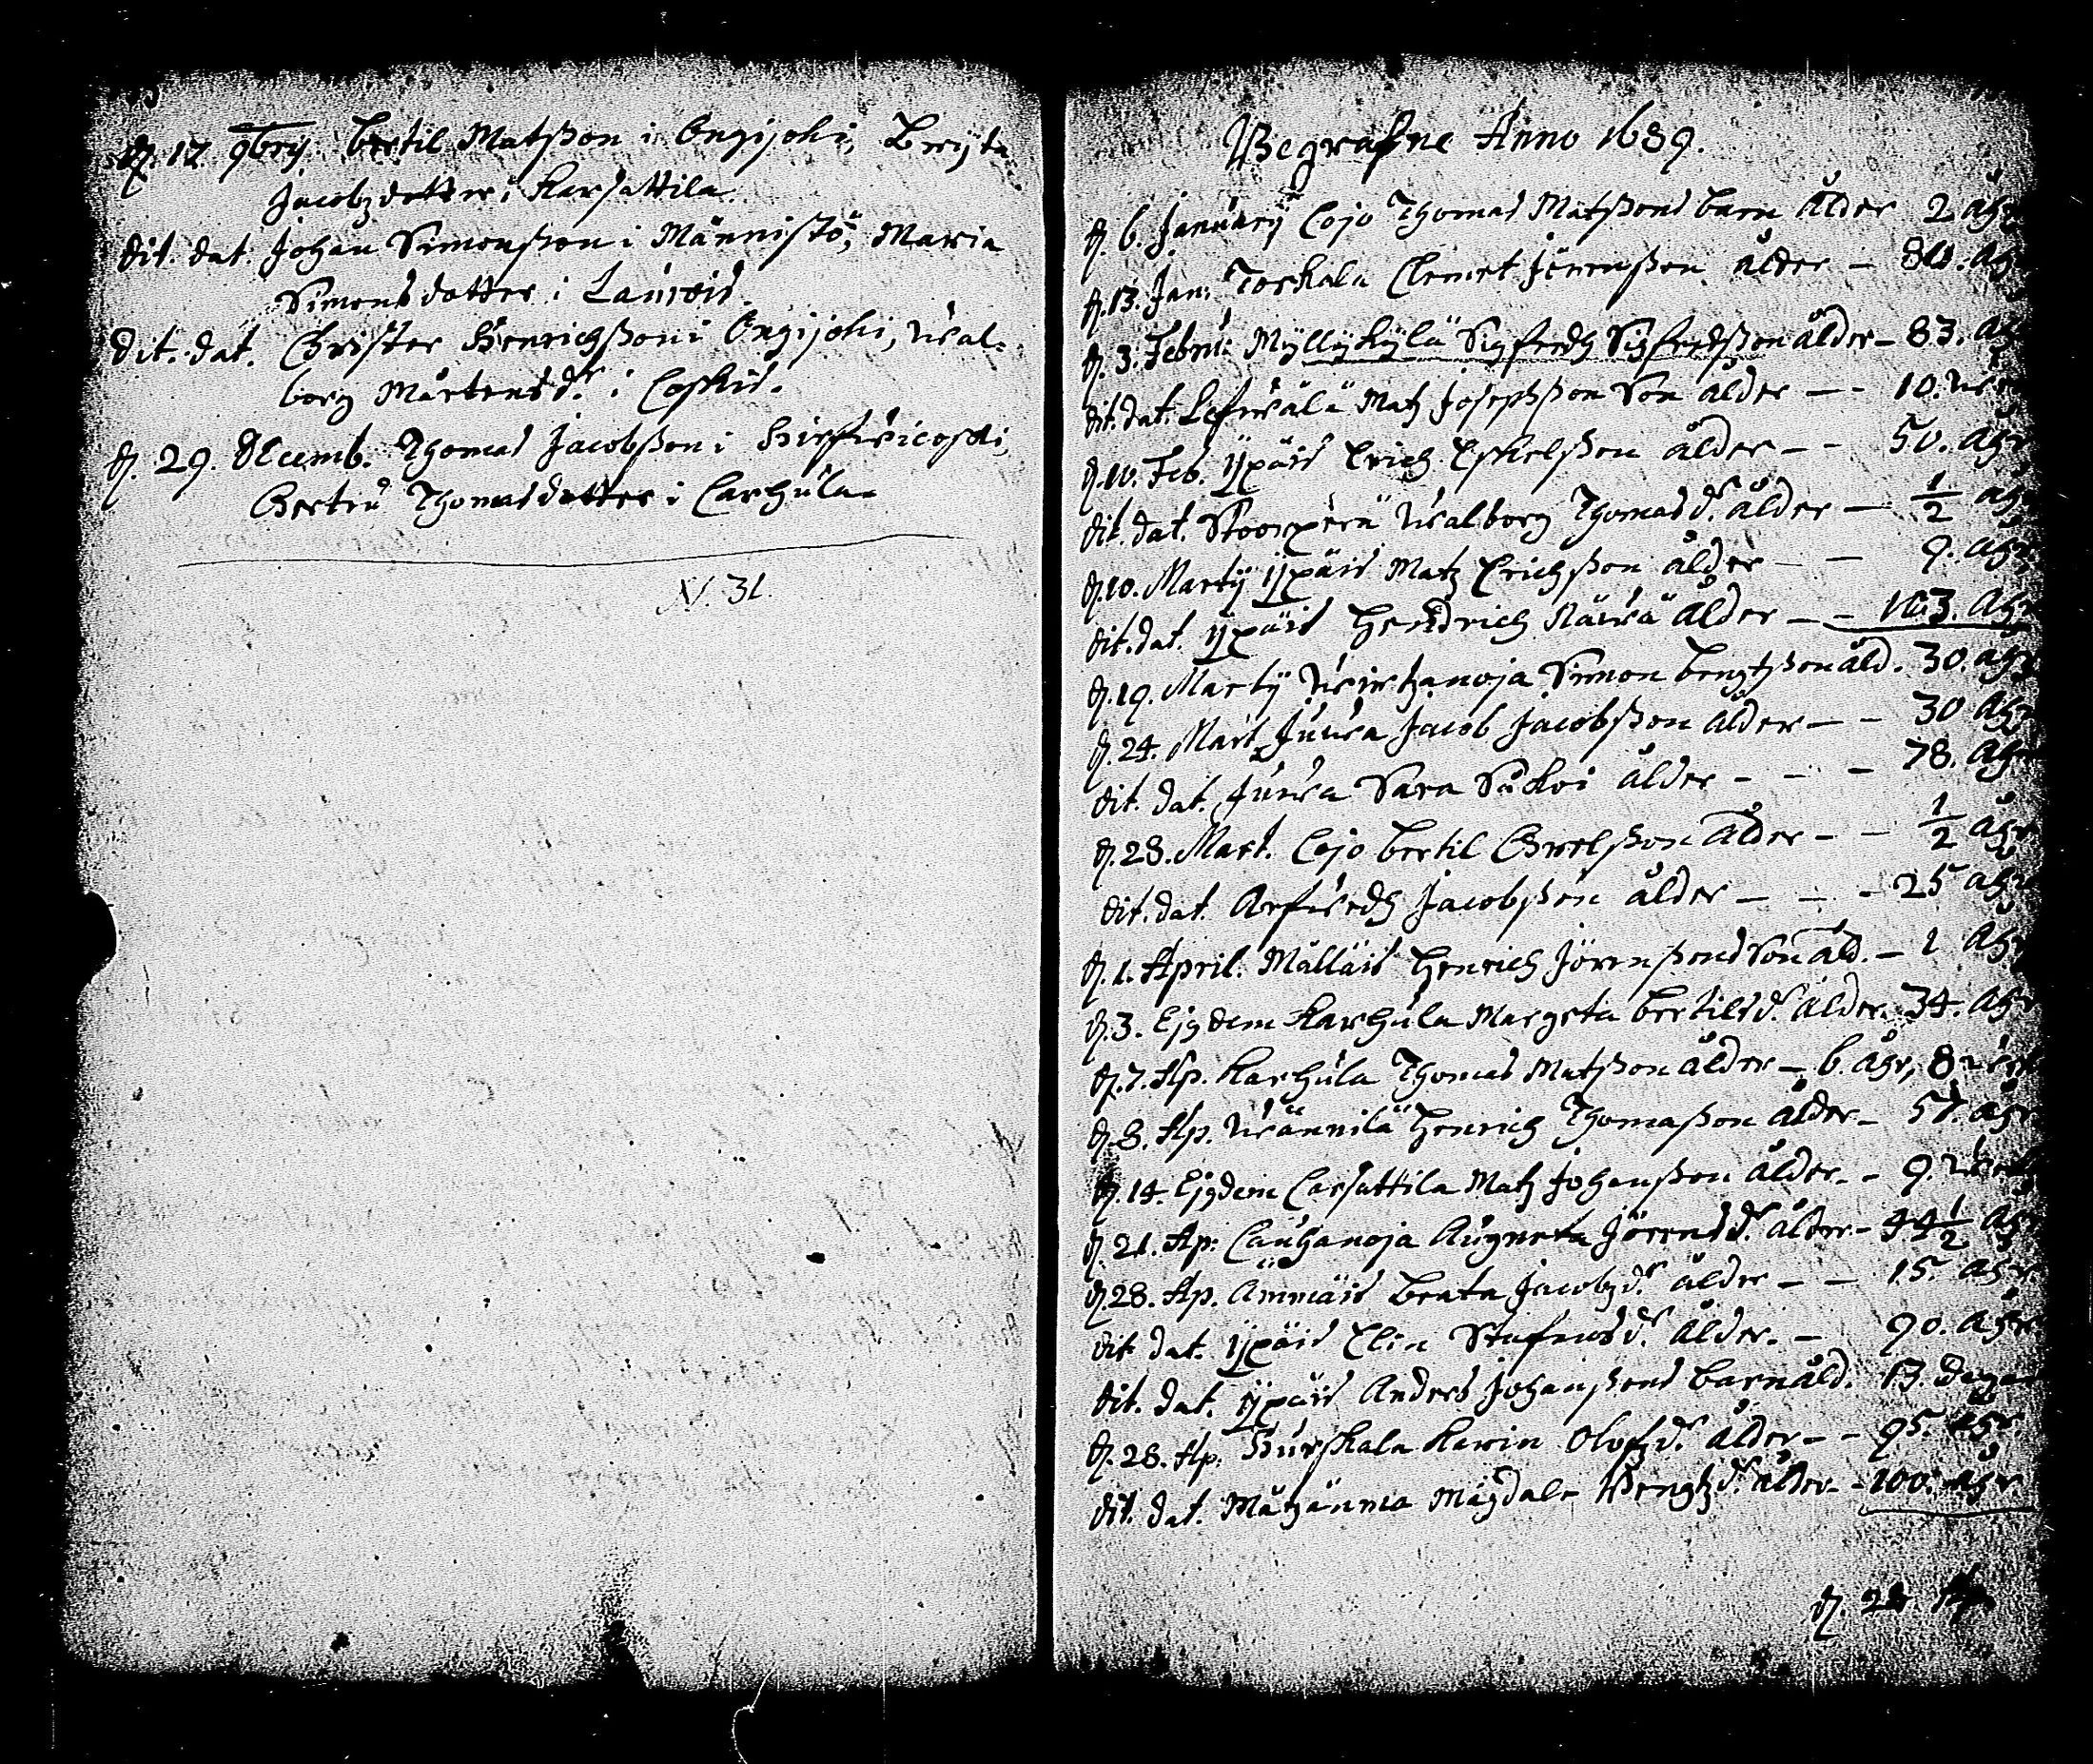 d. 17. 9brij. Bertil Matsson i Ongijoki, Brijta
Jacobzdotter i Karsattila.
dit. dat. Johan Simonsson i Männistö, Maria
Simonsdotter i Laurois.
dit. dat. Christer Henrichsson i Ongijoki, Wal-
borg Mårtensdr. i Coskis.
d. 29. Decemb. Thomas Jacobsson i
Gertru Thomasdotter i Carhula.
N. 31.
Begrafne Anno 1689.
d. 6. Januarij Cojo Thomas Matssons barn ålder 2 åhr
d. 13. Jan: Toskala Clemet Jörensson ålder - 80. åhr
d. 3. Febru: Myllykylä Sigfredh Sigfredsson ålder - 83. åhr
dit. dat. Matz Josephsson Son ålder - - 10.
d. 10. Feb. Ypäis Erich Eskelsson ålder - - 50. åhr
dit. dat. Walborg Thomasdr. ålder - 1/2 åhr
d. 10. Martij Ypäis Matz Erichsson ålder - - 9. åhr
dit. dat. Ypäis Hendrich ålder - - 103. åhr
d. 19. Martij Simon Bengtsson åld. 30. åhr
d. 24. Mart. Juwa Jacob Jacobsson ålder - - 30 åhr
dit. dat. Juwa Sara ålder - - - 78. åhr
d. 28. Mart. Cojo Bertil Grelsson ålder - - 1/2 åhr
dit. dat. Arfwedh Jacobsson ålder - - - 25 åhr
d. 1. April. Mälläis Henrich Jörenssons Son åld. - 1 åhr
d. 3. Ejgdem Karhula Margeta Bertilsdr. ålder. 34. åhr
d. 7. Ap. Karhula Thomas Matsson ålder - 6. åhr, 8
d. 8. Ap. Wännilä Henrich Thomasson ålder - åhr
d. 14. Ejgdem Carsattila Matz Johansson ålder. - 9.
d. 21. Ap: Cauhanoja Augneta Jörensdr. ålder - 44 1/2 åhr
d. 28. Ap. Ämmäis Beata Jacobzdr. ålder - - 15. åhr
dit dat. Ypäis Elin Stafwsdr. ålder. - 90. åhr
dit. dat. Ypäis Anders Johanssons barn åld. 13. Dagar
d. 28. Ap. Hurskala Karin Olofzdr. ålder - - 95. åhr.
dit. dat. Magdale Bengtzdr. ålder - - 100. åhr
d. 28. Ap.